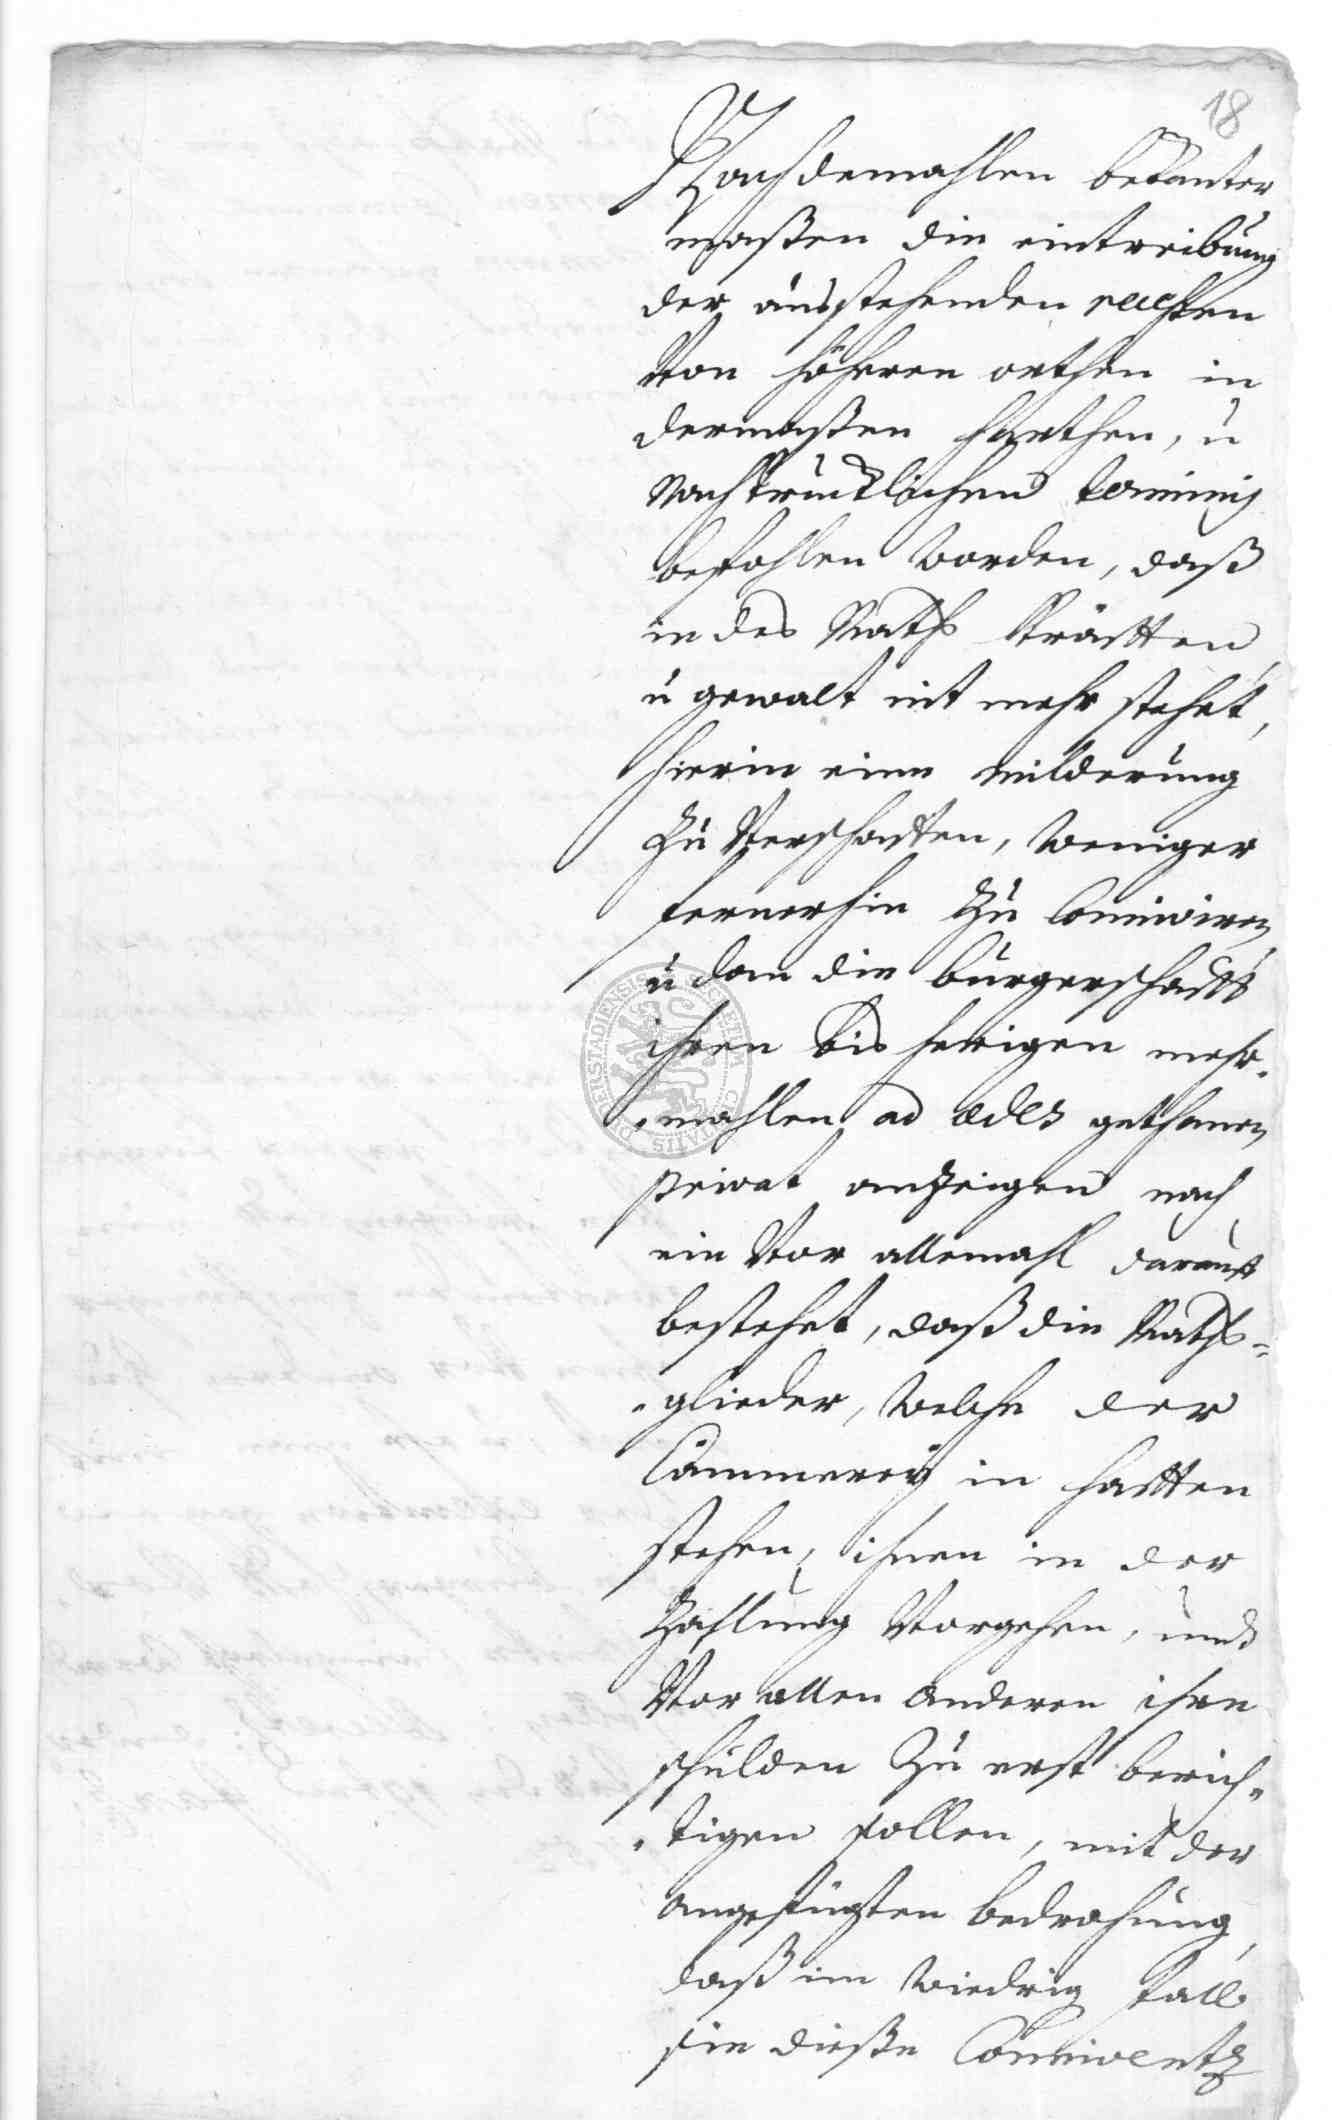 18
Nachdemahlen bekanter
maßen die eintreibung
der ausstehenden recesten
Von höheren orthen in
dermaßen harthen, u
Nachtrücklichen terminis
befohlen worden, daß
in des Raths Kräfften
u gewalt nit mehr stehet,
hierin eine milderung
Zu Verschaffen, weniger
fernerhin Zu Conniviren,
u dan die burgerschafft
ihren bis herigen mehr-
mahlen ad ædes gethanen
privat anzeigen nach
ein Vor allemahl darauff
bestehet, daß die Raths-
glieder, welche der
Cämmerey in hafften
stehen, ihnen in der
Zahlung Vorgehen, und
Vor allen anderen ihre
schulden Zu erst berich-
tigen sollen, mit der
angefügten bedrohung,
daß im wiedrig fall
sie dieße Conniventz